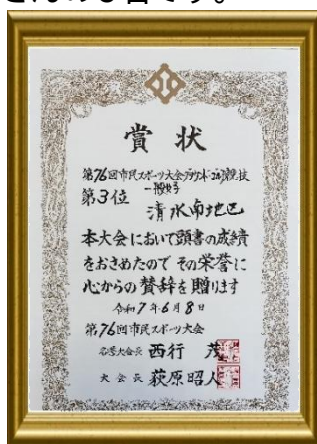 賞状
第76回市民スポーツ大会グラウンド・ゴルフ競技
一般女子
第3位
清水南地区
本大会において頭書の成績
をおさめたので その栄誉に
心からの賛辞を贈ります
令和7年6月8日
第76回市民スポーツ大会
名誉大会長 西行 茂
大会長 荻原昭人